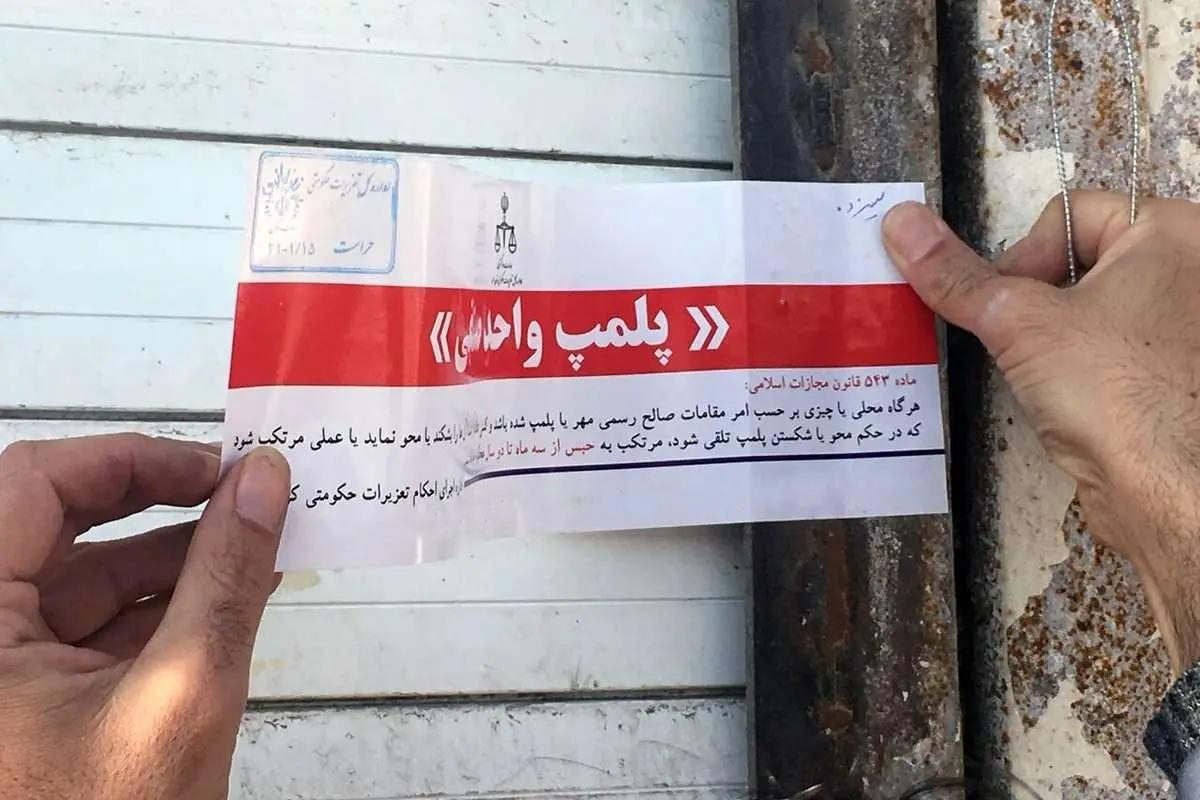 اداره کل تعزیرات حکومتی
حراست
« پلمپ واحد
ماده ۵۴۳ قانون مجازات اسلامی:
هرگاه محلی یا چیزی بر حسب امر مقامات صالح رسمی مهر یا پلمپ شده باشد و کسی بشکند یا محو نماید یا عملی مرتکب شود
که در حکم محو یا شکستن پلمپ تلقی شود، مرتکب به حبس از سه ماه تا دو سال
اجرای احکام تعزیرات حکومتی